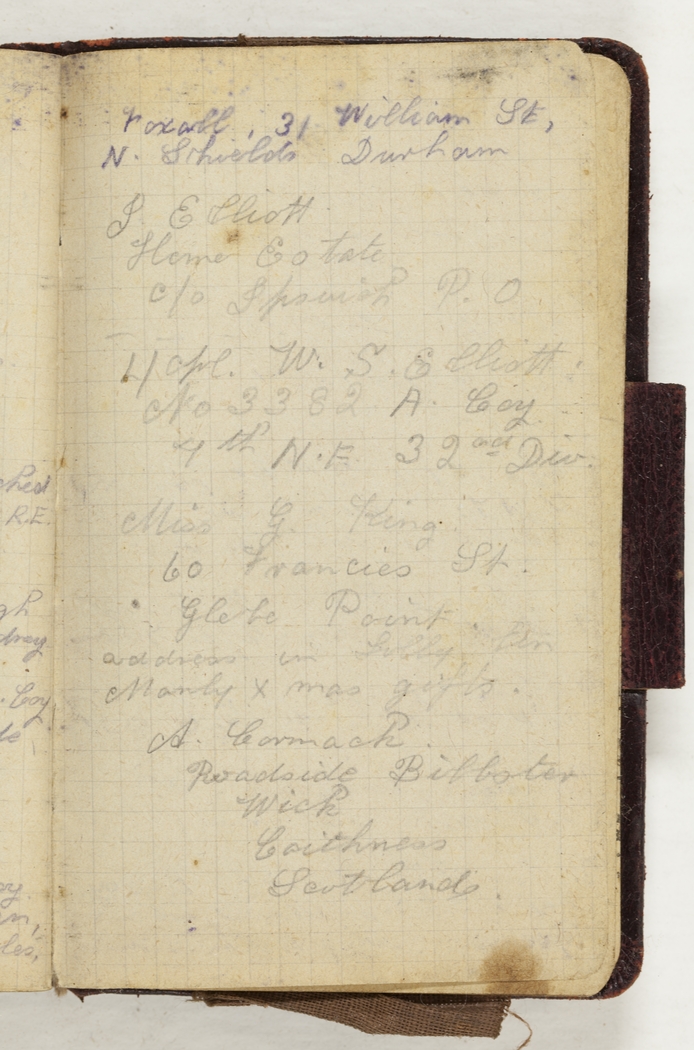 Foxall, 31 William St,
N. Schields Durham
J. Elliott
Home Estate
c/o Ipswich P. O
L/cpl. W. S. Elliott.
No 3382 A. Coy
4th N.F. 32nd Div.
Miss G. King
60 Francies St.
Glebe Point.
address in
Manly Xmas gifts.
A. Cormack.
Roadside Bilbster
Wick
Caithness
Scotland.
ched
R.E.
gh
Coy
les,